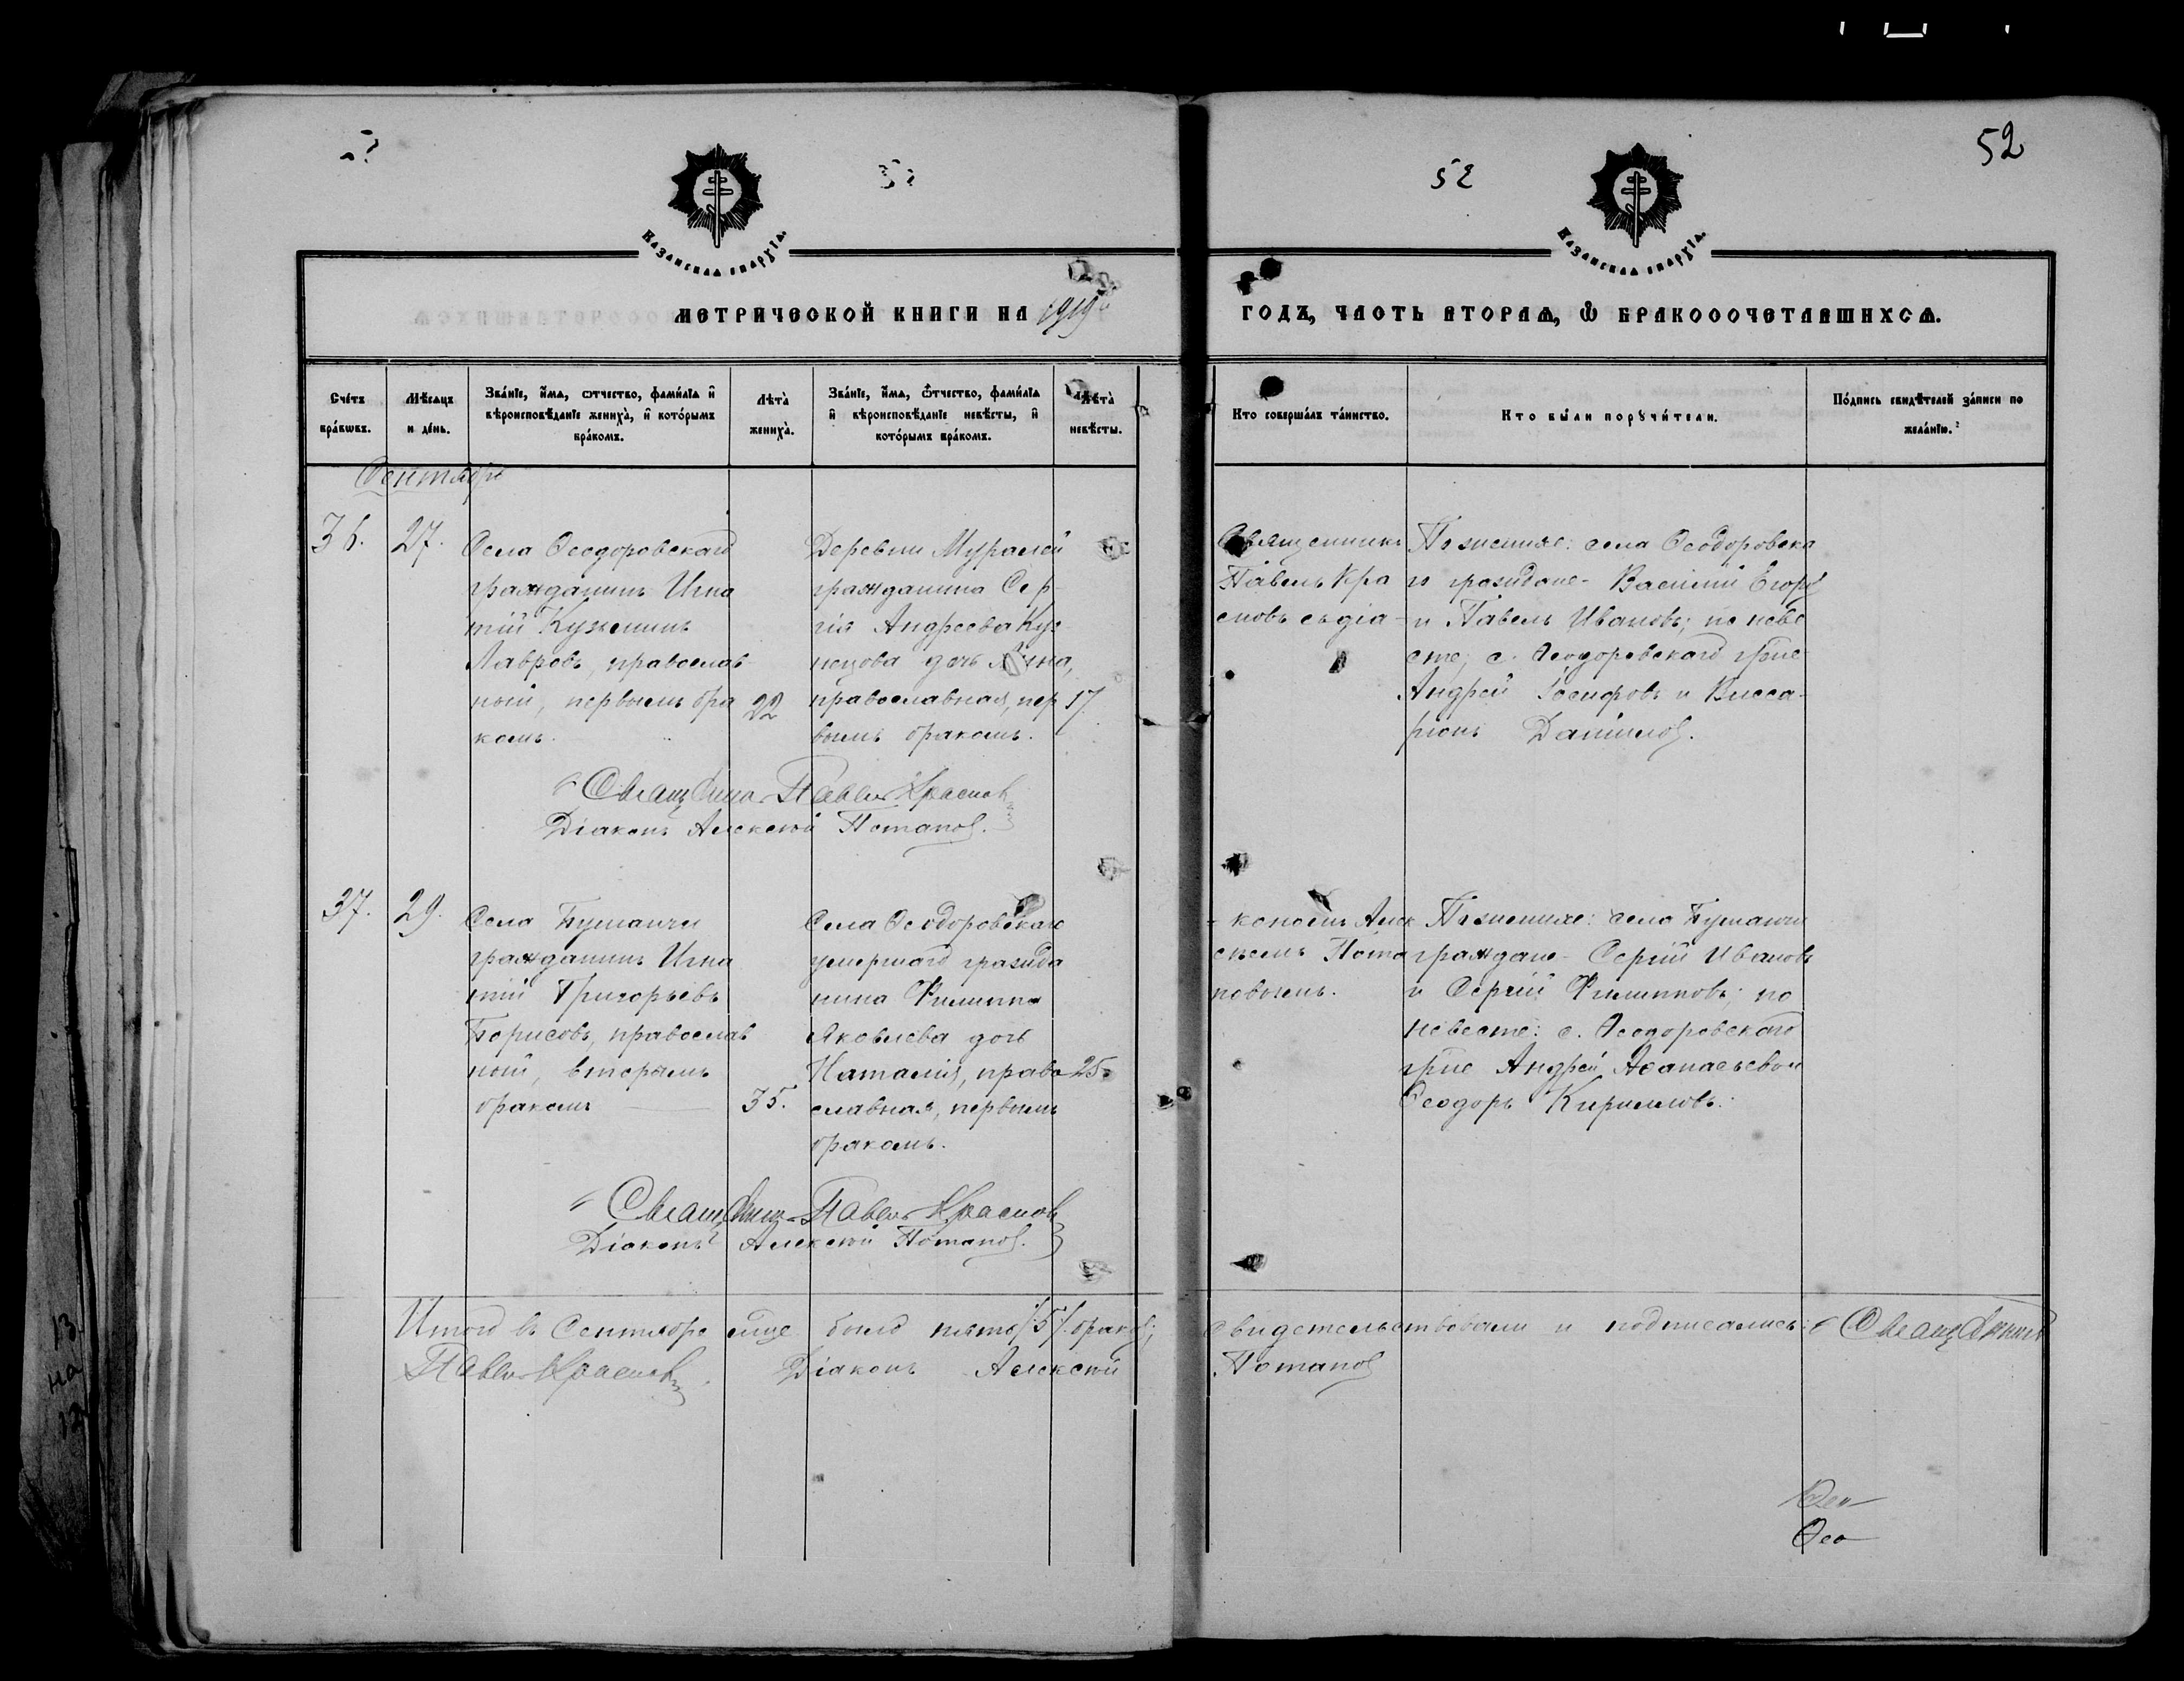 52
52
Казанская епархїа.
Казанская епархїа.
МЕТРИЧЕСКОЙ КНИГИ НА 1919й
ГОДЪ, ЧАСТЬ ВТОРАѦ, Ѡ БРАКОСОЧЕТАВШИХСѦ.
Сче́тъ бра́кѡвъ.
Мѣ́сяцъ и де́нь.
Зва́нїе, и҆́мя, ѻтчество, фами́лїа и҆ вѣроисповѣ́данїе жениха̀, и҆ кото́рымъ бра́комъ.
Лѣта̀ жениха̀.
Зва́нїе, и҆́мя, ѻтчество, фами́лїа и҆ вѣроисповѣ́данїе невѣ́сты, и҆ кото́рымъ бра́комъ.
Лѣта̀ невѣ́сты.
Кто соверша́лъ та́инство.
Кто бы́ли порꙋчи́тели.
По́дпись свидѣ́телей за́писи по жела́нїю.
Сентябрь
36.
27.
Села Ѳеодоровскаго
гражданинъ Игна
тій Кузьминъ
Лавровъ, православ-
ный, первымъ бра
комъ.
22
Деревни Муралей
гражданина Сер-
гія Андреева Куз-
нецова дочь Анна,
православная, пер
вымъ бракомъ.
17.
Священникъ
Павелъ Кра
сновъ съ діа-
По женихе: села Ѳеодоровска
го граждане - Василій Егоров
и Павелъ Ивановъ; по неве
сте; с. Ѳеодоровскаго гр-не
Андрей Іосифовъ и Висса-
ріонъ Даниилов.
Священникъ Павелъ Краснов
Діаконъ Алексей Потапов.
37.
29.
Села
гражданинъ Игна
тій Григорьевъ
Борисовъ, православ
ный, вторымъ
бракомъ
35.
Села Ѳеодоровскаго
умершаго гражда
нина Филиппа
Яковлева дочь
Наталія, право
славная, первымъ
бракомъ.
25.
- кономъ Алек
сеемъ Пота
повымъ.
По женихе: села
граждане - Сергій Ивановъ
и Сергій Филипповъ; по
невесте: с. Ѳеодоровскаго
гр-не Андрей
Ѳеодоръ Кирилловъ.
Священникъ Павелъ Краснов
Діаконъ Алексей Потапов.
Итого въ Сентябре было пять /5/ браков; свидетельствовали и подписались: Священникъ
Павелъ Краснов. Діаконъ Алексей Потапов
Ѳео
Ѳео
13
на